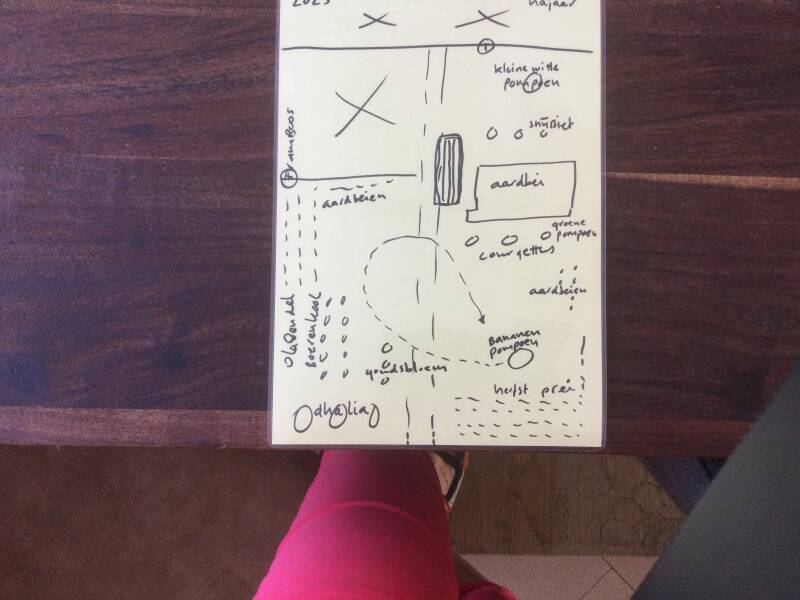 2023
najaar
kleine witte
pompoen
snijbiet
framboos
aardbei
aardbeien
groene
pompoen
courgettes
aardbeien
Bananen
pompoen
Boerenkool
goudsbloem
herfst prei
dhalia